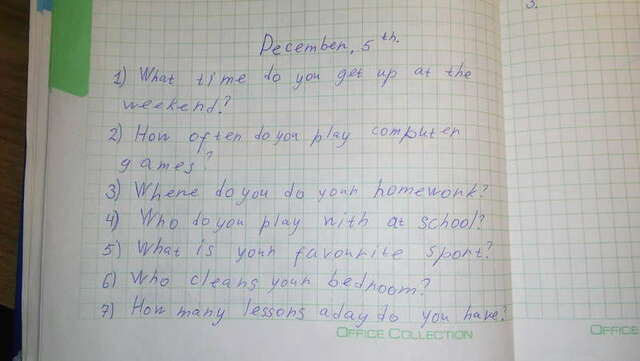 3.
December, 5th.
1) What time do you get up at the
weekend?
2) How often do you play computer
games?
3) Where do you do your homework?
4) Who do you play with at school?
5) What is your favourite sport?
6) Who cleans your bedroom?
7) How many lessons a day do you have?
OFFICE COLLECTION
OFFICE